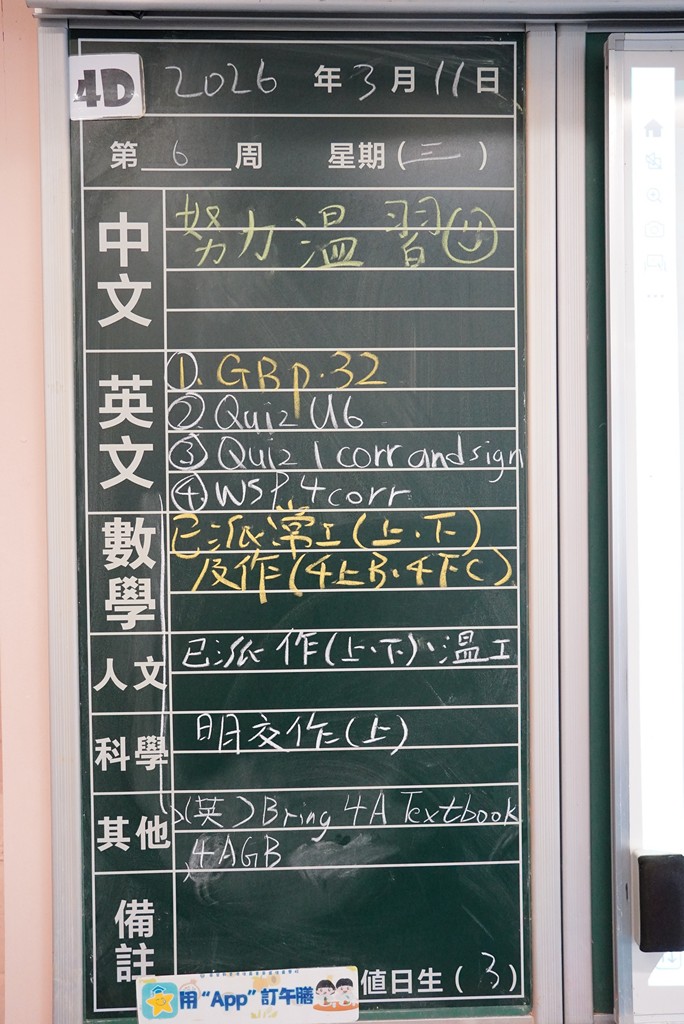 4D 2026 年 3 月 11 日
第 6 周 星期 (三)
中文
努力溫習
英文
①. GB p.32
② Quiz U6
③ Quiz 1 corr and sign
④ WSP.4 corr
數學
已派常工(上.下)
及作(4上B.4下C)
人文
已派作(上.下).溫工
科學
明交作(上)
其他
(英) Bring 4A Textbook
4AGB
備註
值日生 (3)
用“App”訂午膳